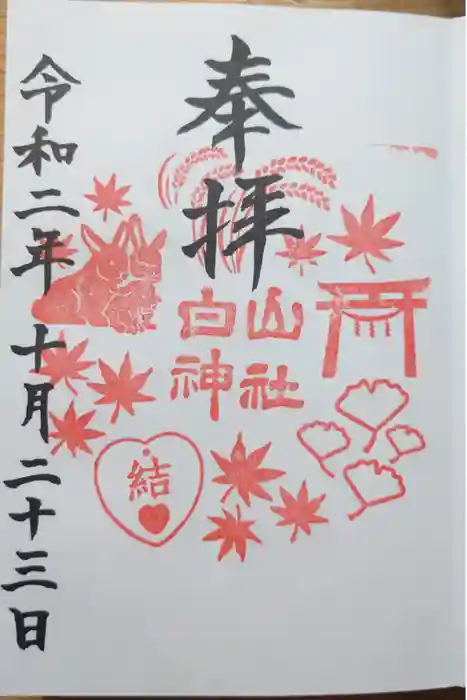 奉拝
白山神社
結
令和二年十月二十三日